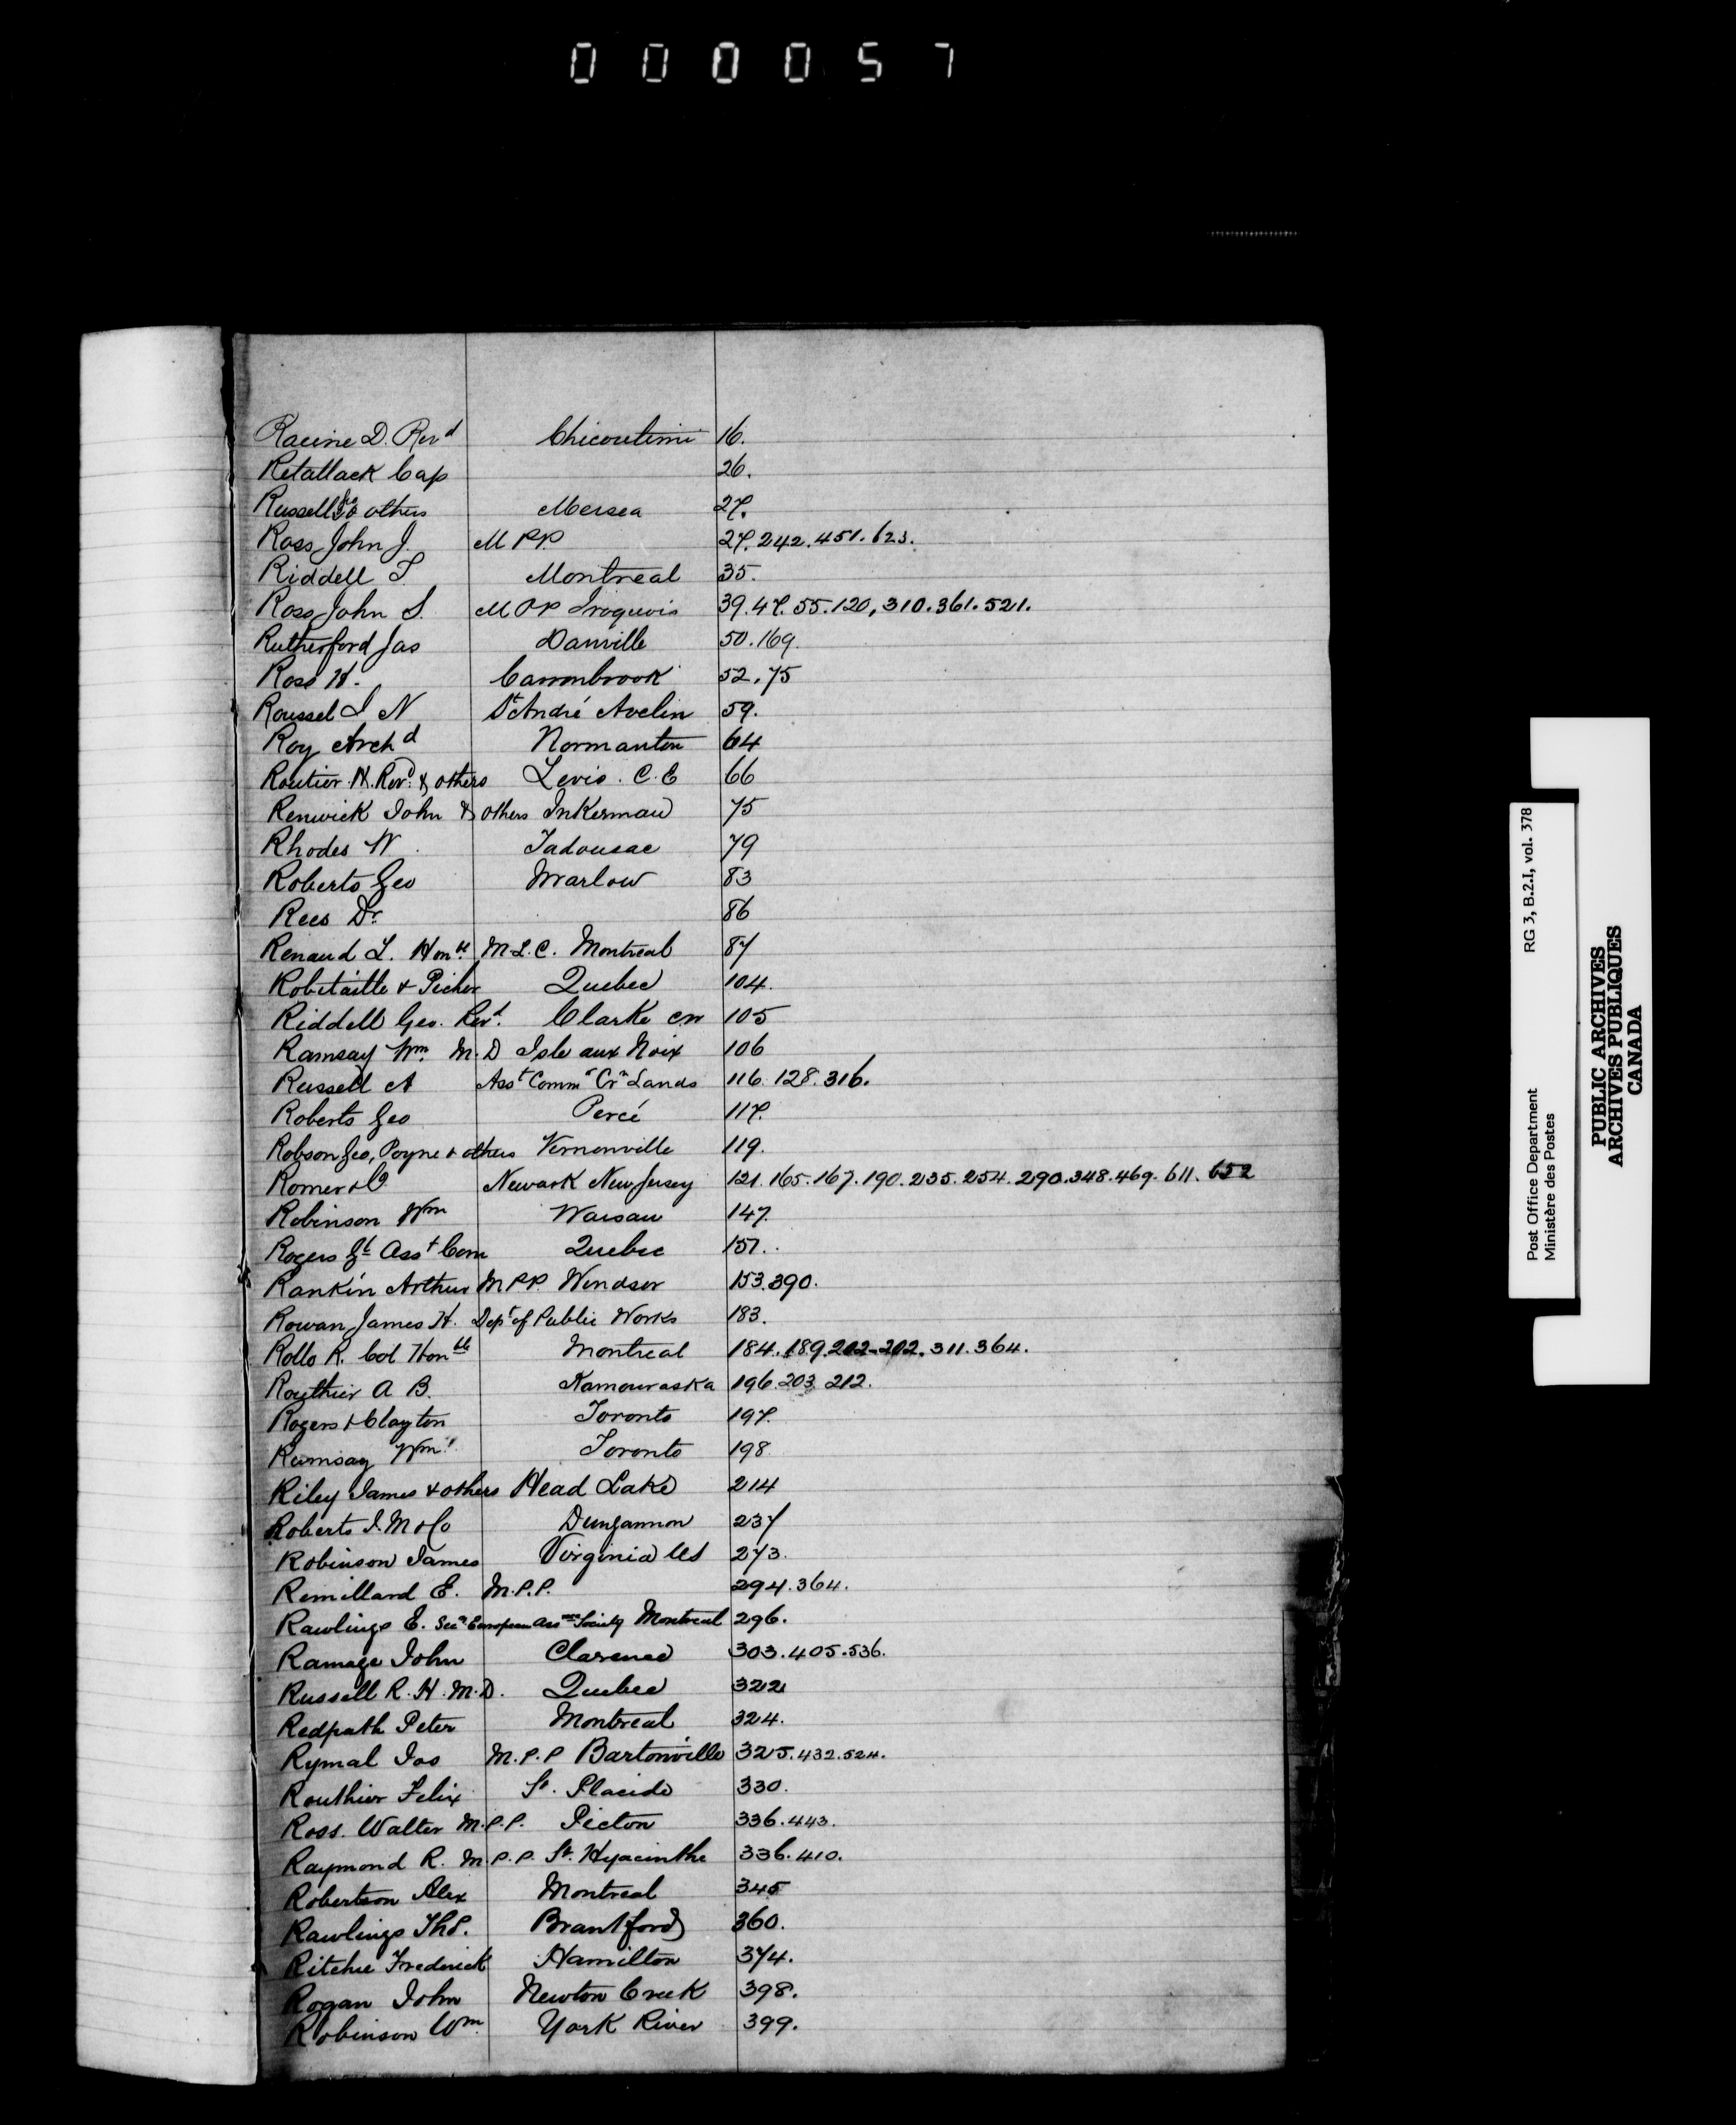 000057
Racine D. Revd Chicoutimi 16.
Retallack Cap 26.
Russell Geo & others Mersea 27.
Ross John J. M PP. 27. 242. 451. 623.
Riddell T. Montreal 35.
Ross John S. M PP Iroquois 39. 47. 55. 120, 310. 361. 521.
Rutherford Jas Danville 50. 169.
Ross H. Carronbrook 52, 75
Roussel I N St André Avelin 59.
Roy Archd Normanton 64
Routier H. Revd. & others Levis. C. E 66
Renwick John & others Inkerman 75
Rhodes W. Tadousac 79
Roberts Geo Marlow 83
Rees Dr. 86
Renaud L. Honble M. L. C. Montreal 87
Robitaille & Picher Quebec 104.
Riddell Geo. Revd. Clarke CW 105
Ramsay Wm. M. D Isle aux Noix 106
Russell A Asst Commr Crn Lands 116. 128. 316.
Roberts Geo Percé 117.
Robson Geo, Poyne & others Vernonville 119.
Romer & Co Newark New Jersey 121. 165. 167. 190. 235. 254. 290. 348. 469. 611. 652
Robinson Wm Warsaw 147.
Rogers Asst Com Quebec 151.
Rankin Arthur M PP. Windsor 153. 390.
Rowan James H. Dept of Public Works 183.
Rollo R. Col Honble Montreal 184. 189. 202-202. 311. 364.
Routhier A B. Kamouraska 196. 203. 212.
Rogers & Clayton Toronto 197.
Ramsay Wm. Toronto 198
Riley James & others Head Lake 214
Roberts I. M & Co Dungannon 237
Robinson James Virginia US 273.
Remillard E. M. P. P. 294. 364.
Rawlings E. Secy European Assce Society Montreal 296.
Ramage John Clarence 303. 405. 536.
Russell R. H. M. D. Quebec 322
Redpath Peter Montreal 324.
Rymal Jos M. P. P Bartonville 325. 432. 524.
Routhier Felix St. Placide 330.
Ross. Walter M. P. P. Picton 336. 443.
Raymond R. M. P. P. St. Hyacinthe 336. 410.
Robertson Alex Montreal 345
Rawlings Thos. Brantford 360.
Ritchie Frederick Hamilton 374.
Rogan John Newton Creek 398.
Robinson Wm. York River 399.
RG 3, B.2.I, vol. 378
Post Office Department
Ministère des Postes
PUBLIC ARCHIVES
ARCHIVES PUBLIQUES
CANADA